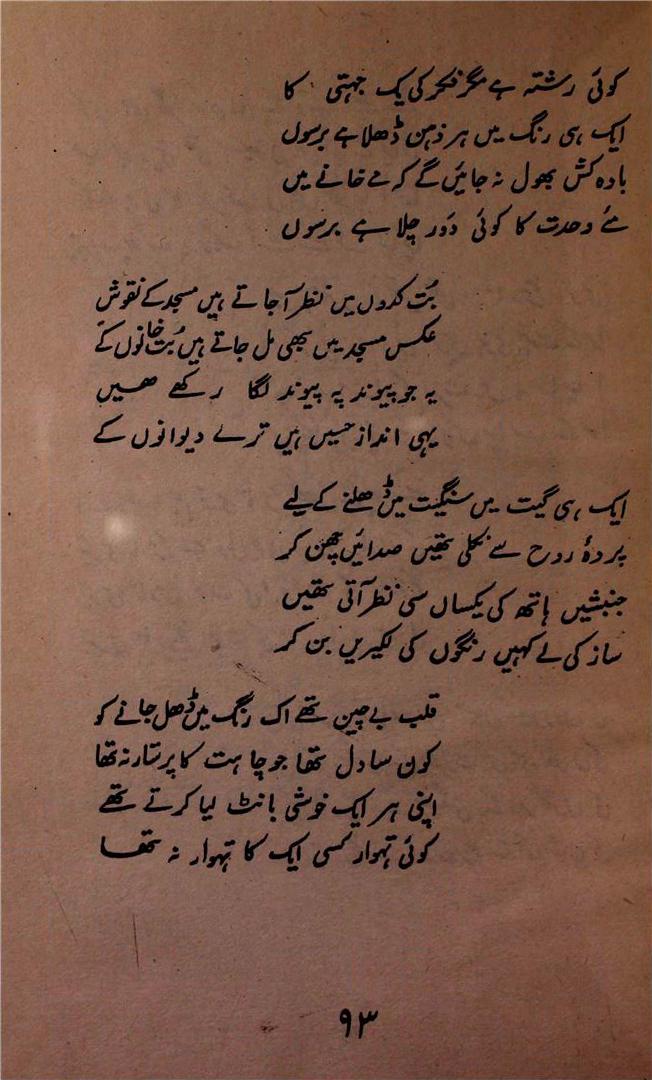 کوئی رشتہ ہے مگر فکر کی یک جہتی کا
ایک ہی رنگ میں ہر ذہن ڈھلا ہے برسوں
بادہ کش بھول نہ جائیں گے کہ مے خانے میں
مئے وحدت کا کوئی دَور چلا ہے برسوں
بُت کدوں میں نظر آجاتے ہیں مسجد کے نقوش
عکس مسجد میں بھی مل جاتے ہیں بُت خانوں کے
یہ جو پیوند پہ پیوند لگا رکھے ھیں
یہی انداز حسیں ہیں ترے دیوانوں کے
ایک ہی گیت میں سنگیت میں ڈھلنے کے لیے
پردۂ روح سے نکلی تھیں صدائیں چھن کر
جنبشیں ہاتھ کی یکساں سی نظر آتی تھیں
ساز کی لے کہیں رنگوں کی لکیریں بن کر
قلب بے چین تھے اک رنگ میں ڈھل جانے کو
کون سا دل تھا جو چاہت کا پرستار نہ تھا
اپنی ہر ایک خوشی بانٹ لیا کرتے تھے
کوئی تہوار کسی ایک کا تہوار نہ تھا
۹۳